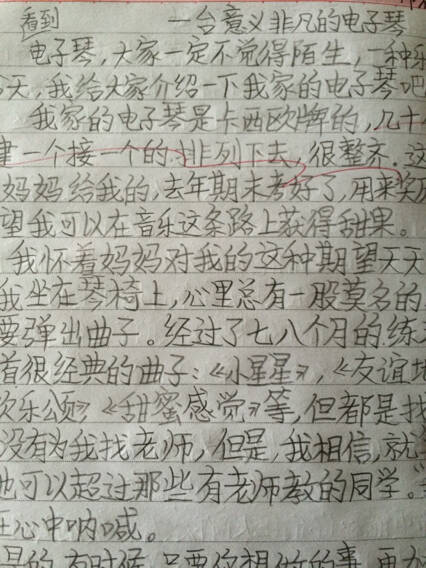 看到 一台意义非凡的电子琴
电子琴，大家一定不觉得陌生，一种乐
天，我给大家介绍一下我家的电子琴吧
我家的电子琴是卡西欧牌的，几十
一个接一个的排列下去，很整齐。这
妈妈给我的，去年期末考好了，用来奖
望我可以在音乐这条路上获得甜果。
我怀着妈妈对我的这种期望天天
我坐在琴椅上，心里总有一股莫名的
要弹出曲子。经过了七八个月的练
首很经典的曲子：《小星星》，《友谊地
欢乐颂》《甜蜜感觉》等，但都是找
没有为我找老师，但是，我相信，就
也可以超过那些有老师教的同学。
在心中呐喊。
是的，有时候，只要你想做的事，再